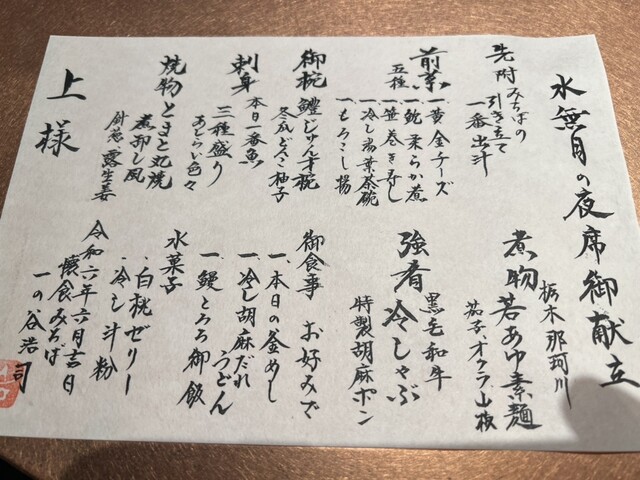 水無月の夜席御献立
先附 みちばの
引き立て
一番出汁
前菜
五種
一、黄金チーズ
一、蛸柔らか煮
一、笹巻き寿し
一、冷し湯葉茶碗
一、もろこし揚
御椀 鱧じゅんさい椀
冬瓜 どんこ 柚子
刺身
本日一番魚
三種盛り
あしらい色々
焼物 とまと丸焼
煮卸し風
針葱、露生姜
上様
栃木那珂川
煮物 若あゆ素麺
茄子 オクラ 山椒
強肴
黒毛和牛
冷しゃぶ
特製胡麻ポン
御食事 お好みで
一、本日の釜めし
一、冷し胡麻だれうどん
一、鰻とろろ御飯
水菓子
、白桃ゼリー
、冷し汁粉
令和六年六月吉日
懐食みちば
一の谷浩司